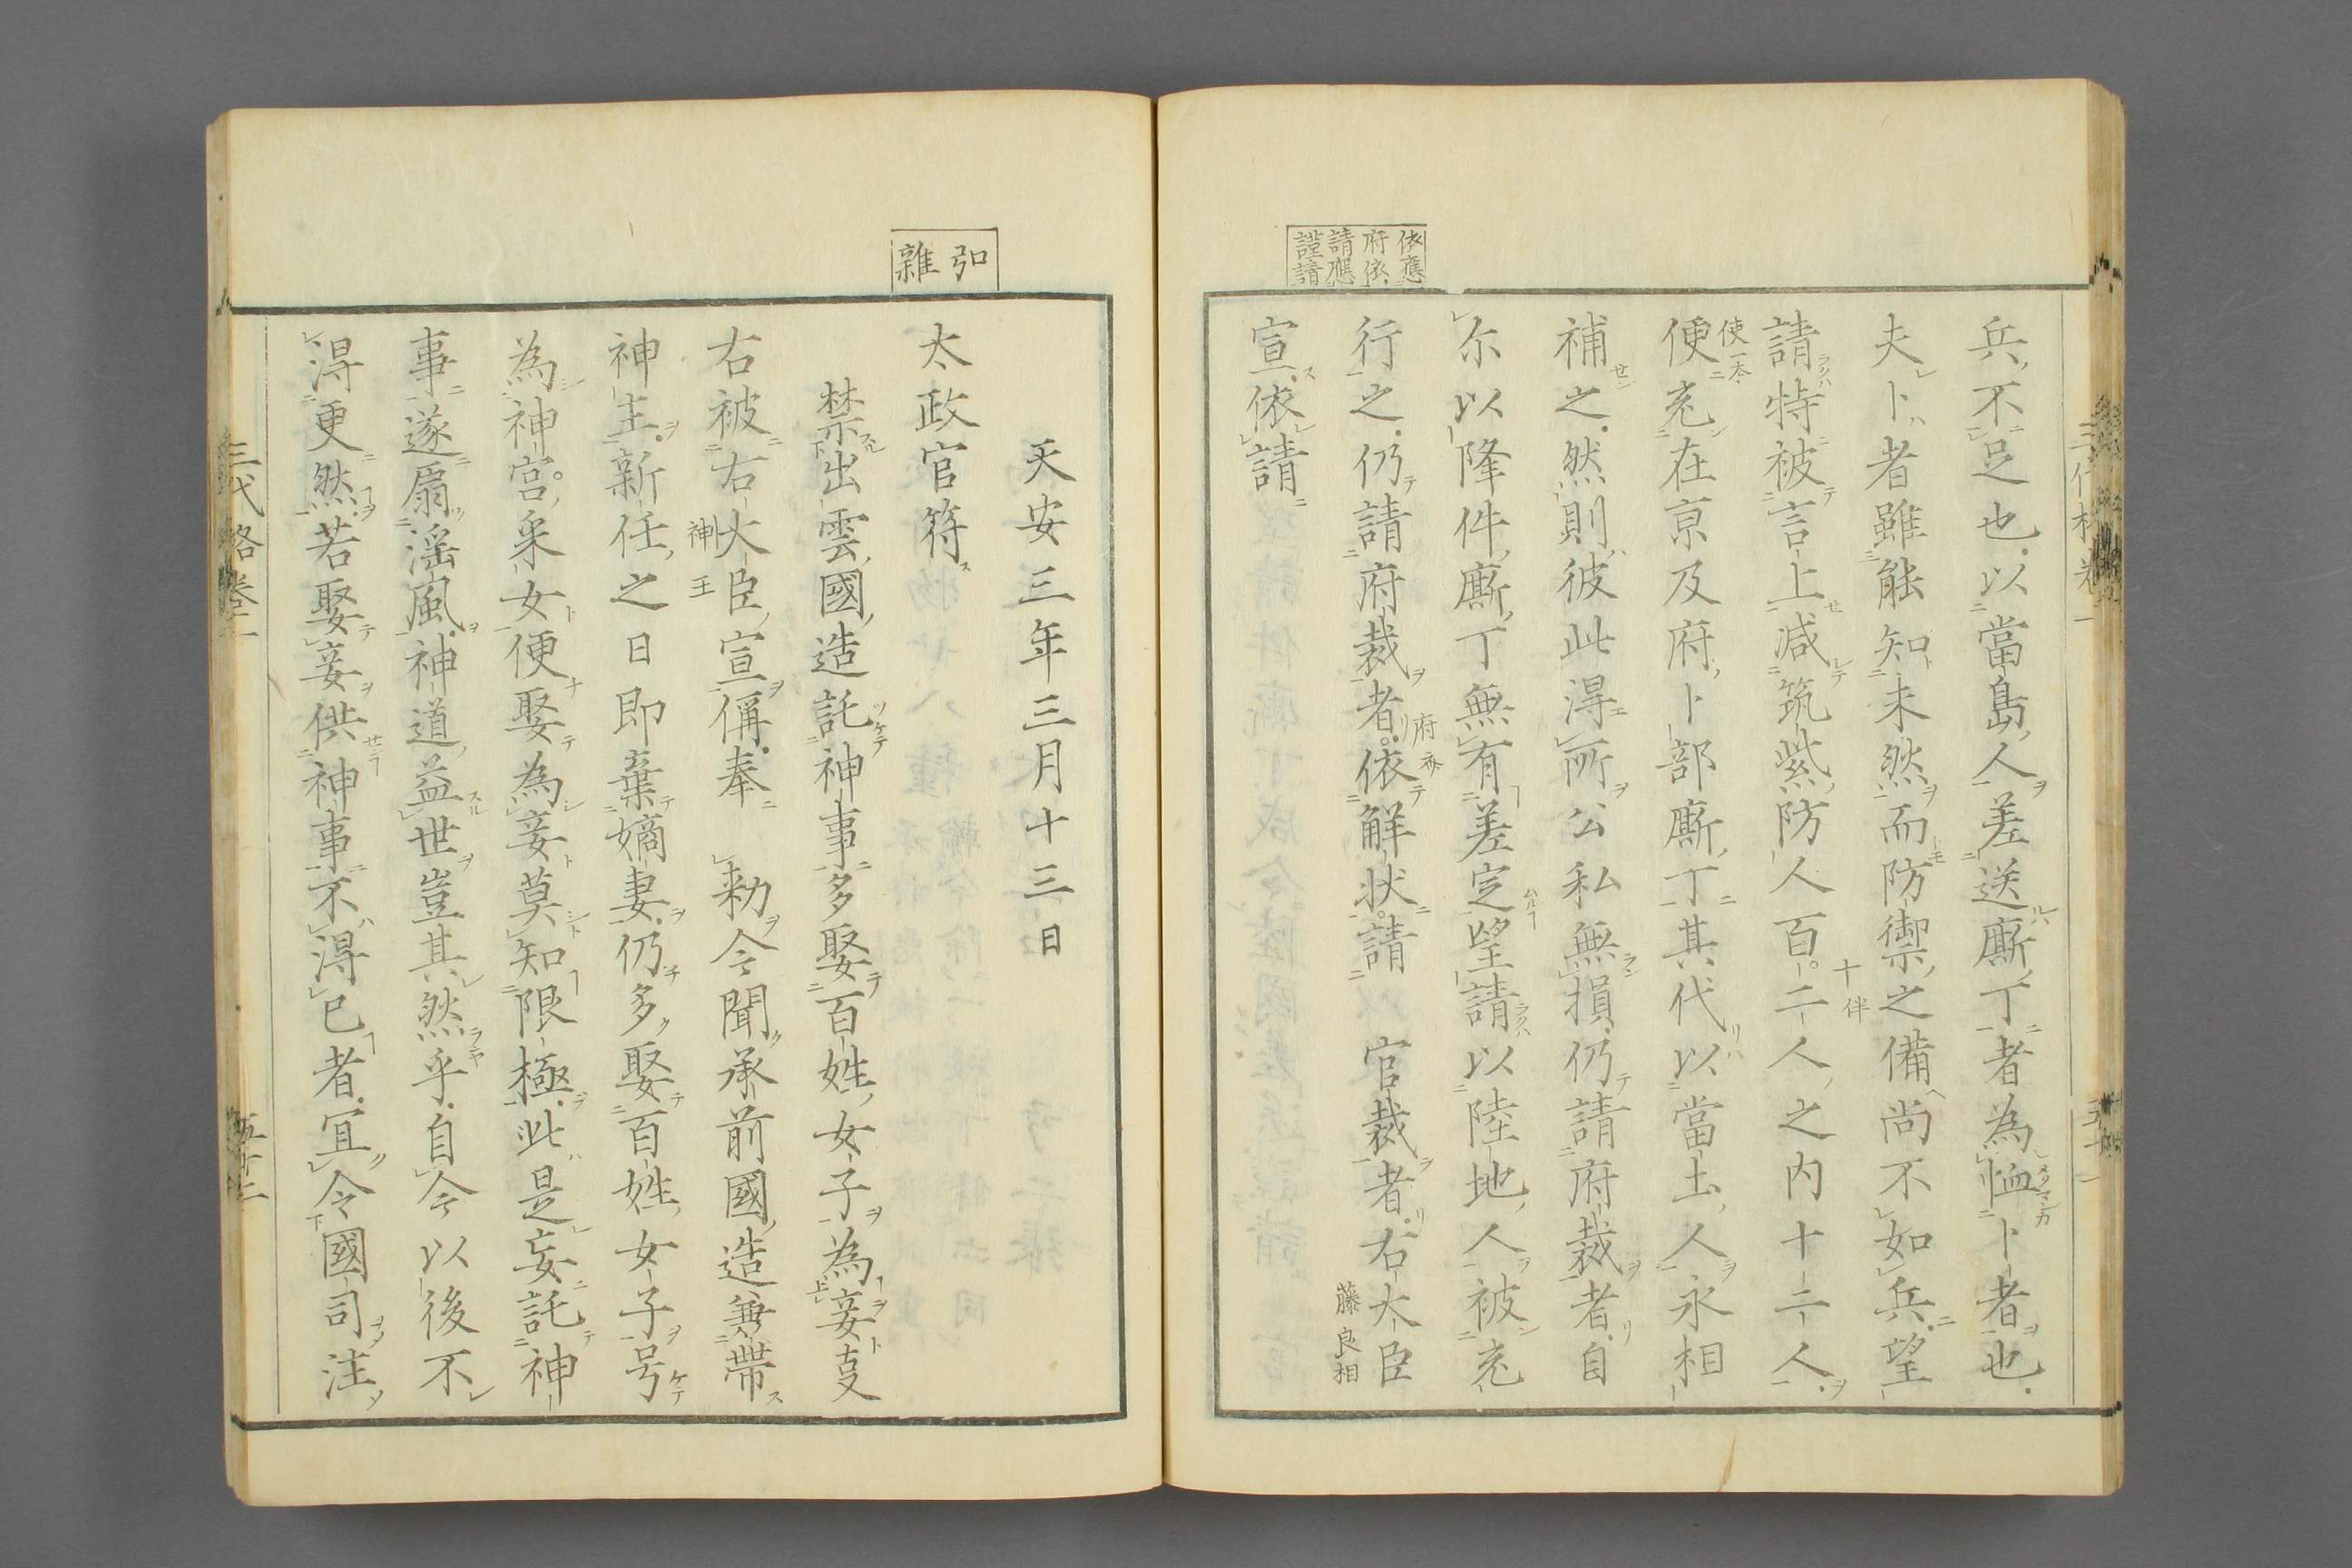 依應
府依
請應
謹請
兵不足也以當島人差送廝丁者為恤卜者也
夫卜者雖能知未然而防禦之備尚不如兵望
請特被言上減筑紫防人百二人之内十二人
十伴
便充在京及府卜部廝丁其代以當土人永相
使一本
補之然則彼此得所公私無損仍請府裁者自
尓以降件廝丁無有差定望請以陸地人被充
行之仍請府裁者依解状請　官裁者右大臣
藤良相
宣依請
弘
雜
天安三年三月十三日
太政官符
禁出雲國造託神事多娶百姓女子為妾亊
右被右大臣宣偁奉　勅今聞承前國造兼帶
神王
神主新任之日即棄嫡妻仍多娶百姓女子号
為神宮采女便娶為妾莫知限極此是妄託神
事遂扇滛風神道益世豈其然乎自今以後不
淂更然若娶妾供神事不淂已者宜令國司注
三代格卷一
五十二